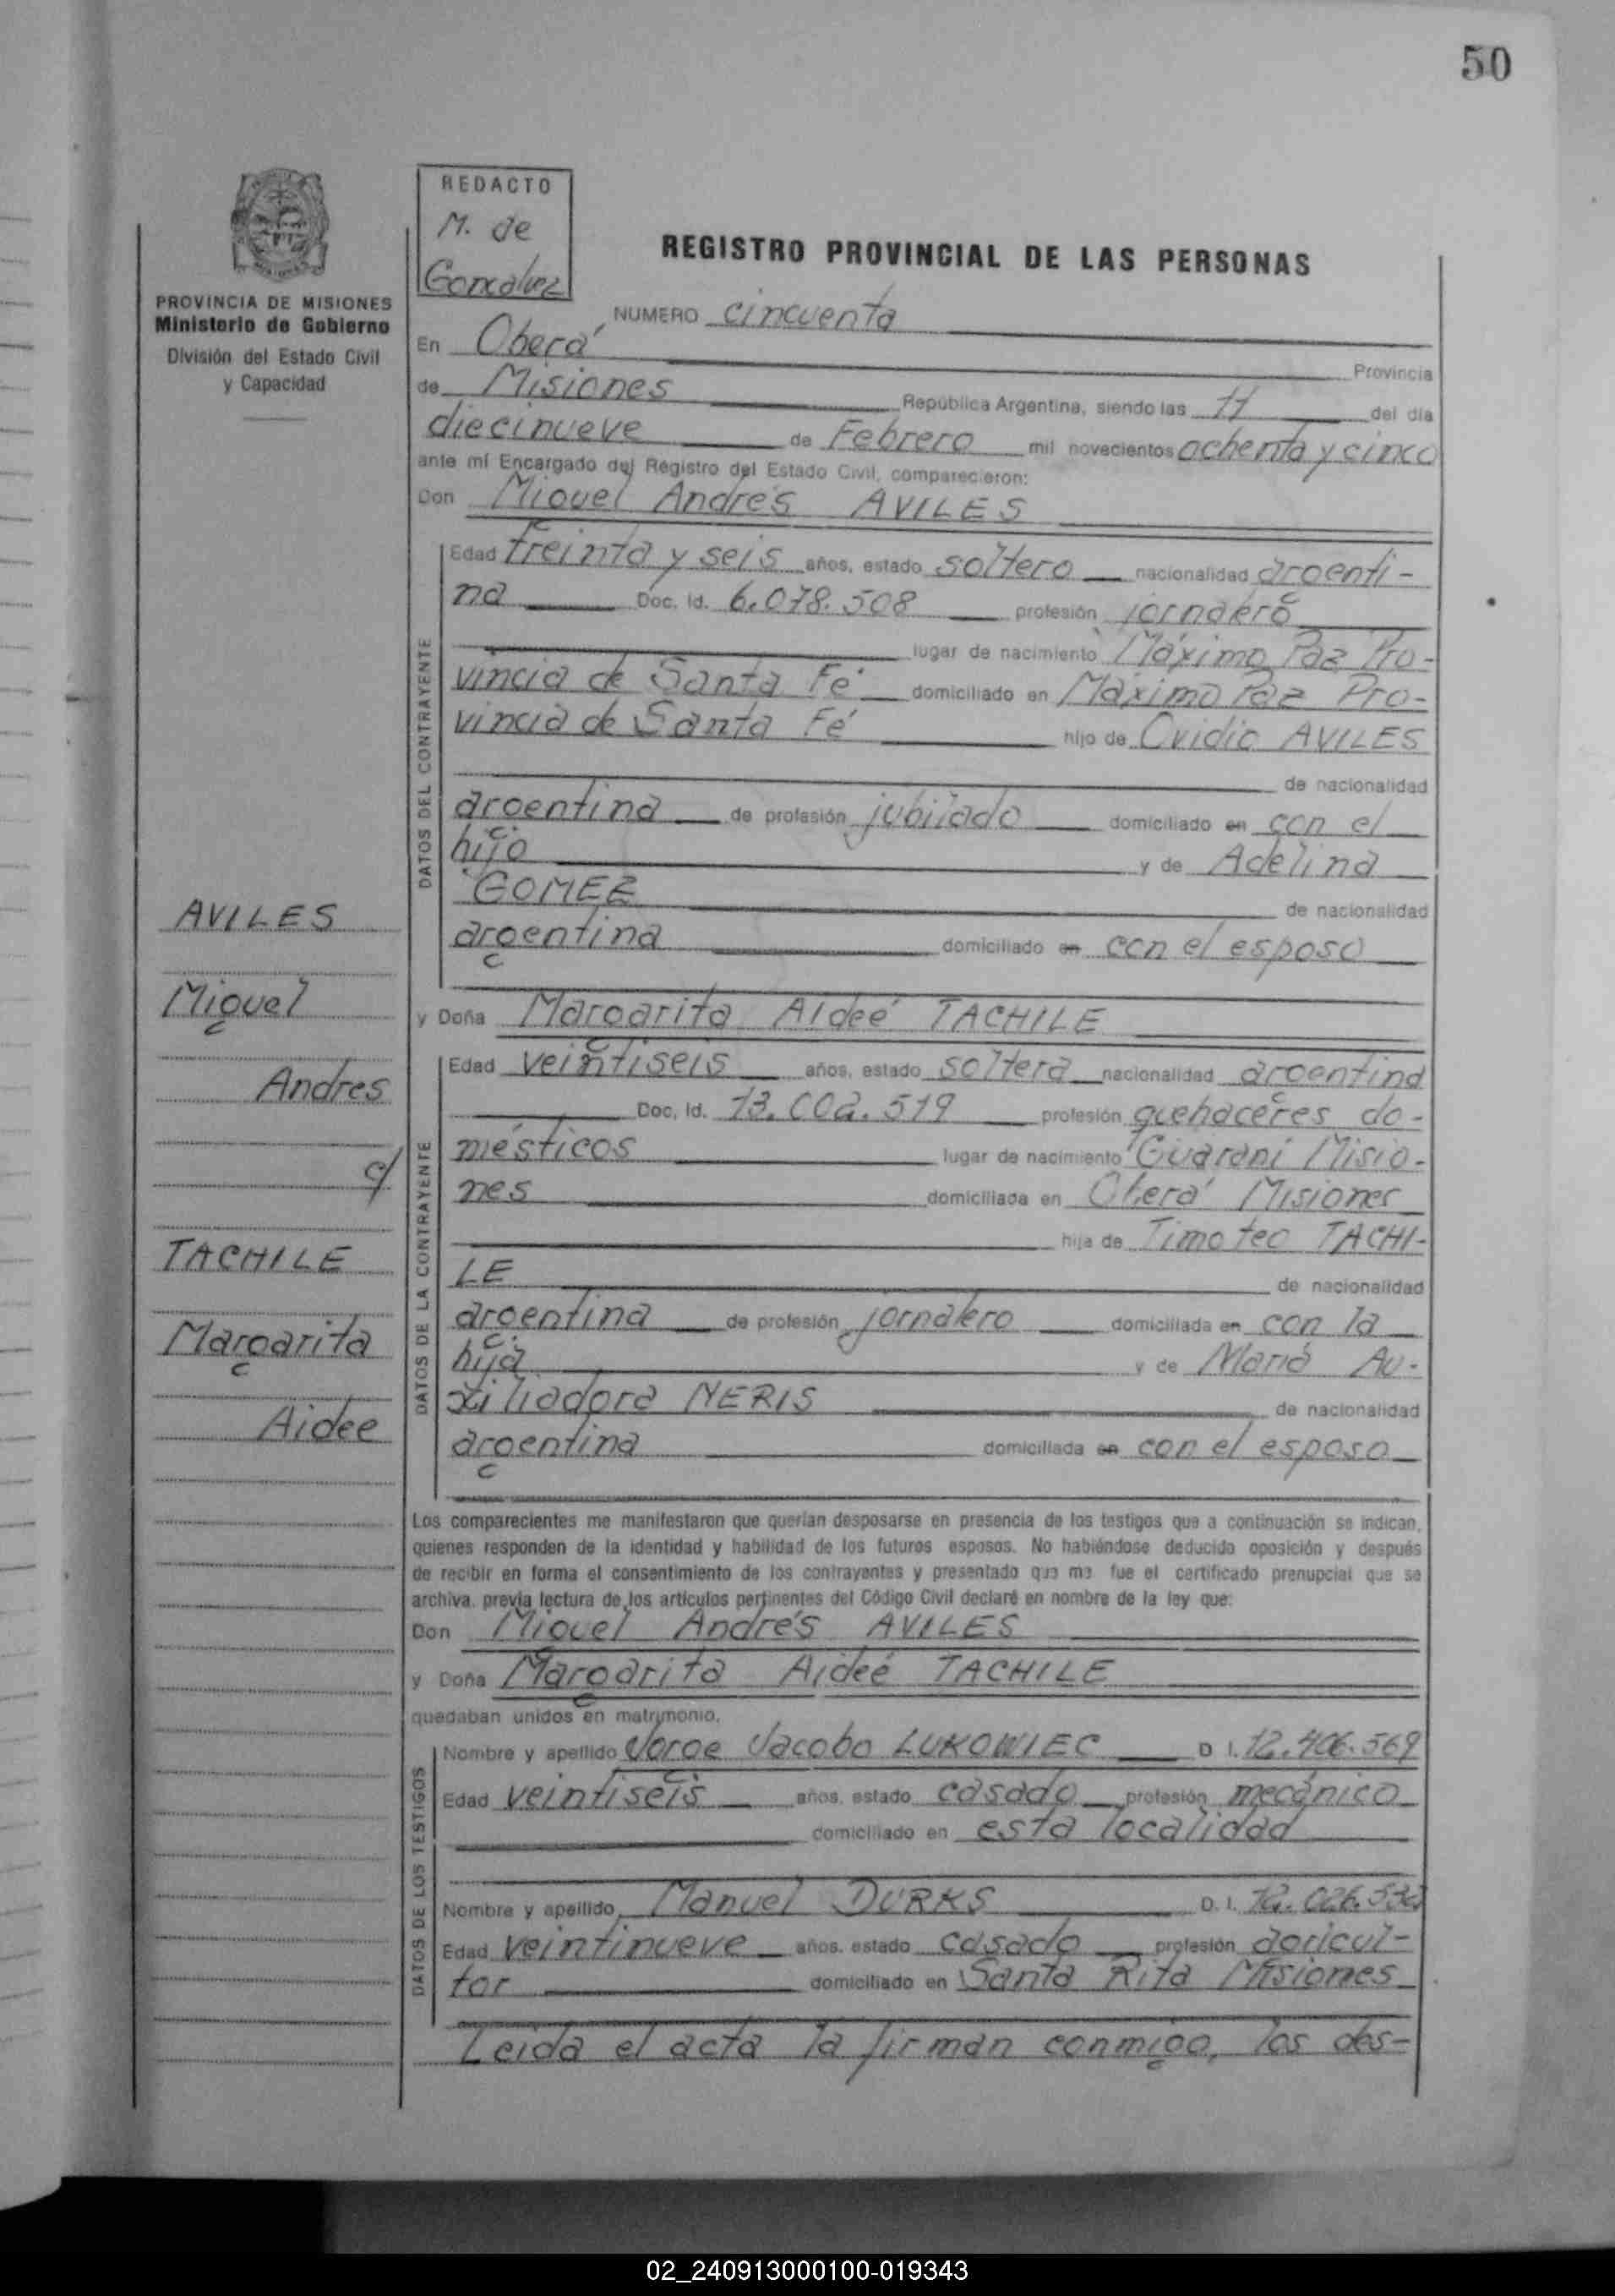 50
REDACTO
M. de
Goncalvez
REGISTRO PROVINCIAL DE LAS PERSONAS
PROVINCIA DE MISIONES
Ministerio de Gobierno
División del Estado Civil
y Capacidad
NUMERO cincuenta
En Oberá Provincia
de Misiones República Argentina, siendo las 11 del día
diecinueve de Febrero mil novecientos ochenta y cinco
ante mí Encargado del Registro del Estado Civil, comparecieron:
Don Miguel Andrés AVILES
DATOS DEL CONTRAYENTE
Edad treinta y seis años, estado soltero nacionalidad argenti-
na Doc. Id. 6.078.508 profesión jornalero
lugar de nacimiento Máximo Paz Pro-
vincia de Santa Fé domiciliado en Máximo Paz Pro-
vincia de Santa Fé hijo de Ovidio AVILES
de nacionalidad
argentina de profesión jubilado domiciliado en con el
hijo y de Adelina
GOMEZ de nacionalidad
argentina domiciliado en con el esposo
y Doña Margarita Aideé TACHILE
DATOS DE LA CONTRAYENTE
Edad veintiseis años, estado soltera nacionalidad argentina
Doc. Id. 13.002.519 profesión quehaceres do-
mésticos lugar de nacimiento Guaraní Misio-
nes domiciliada en Oberá Misiones
hija de Timoteo TACHI-
LE de nacionalidad
argentina de profesión jornalero domiciliada en con la
hija y de María Au-
xiliadora NERIS de nacionalidad
argentina domiciliada en con el esposo
AVILES
Miguel
Andres
c/
TACHILE
Margarita
Aidee
Los comparecientes me manifestaron que querían desposarse en presencia de los testigos que a continuación se indican,
quienes responden de la identidad y habilidad de los futuros esposos. No habiéndose deducido oposición y después
de recibir en forma el consentimiento de los contrayentes y presentado que me fue el certificado prenupcial que se
archiva, previa lectura de los artículos pertinentes del Código Civil declaré en nombre de la ley que:
Don Miguel Andrés AVILES
y Doña Margarita Aideé TACHILE
quedaban unidos en matrimonio.
DATOS DE LOS TESTIGOS
Nombre y apellido Jorge Jacobo LUKOWIEC D. I. 12.406.569
Edad veintiseis años, estado casado profesión mecánico
domiciliado en esta localidad
Nombre y apellido Manuel DURKS D. I.
Edad veintinueve años, estado casado profesión agricul-
tor domiciliado en Santa Rita Misiones
Leida el acta la firman conmigo, los des-
02_240913000100-019343